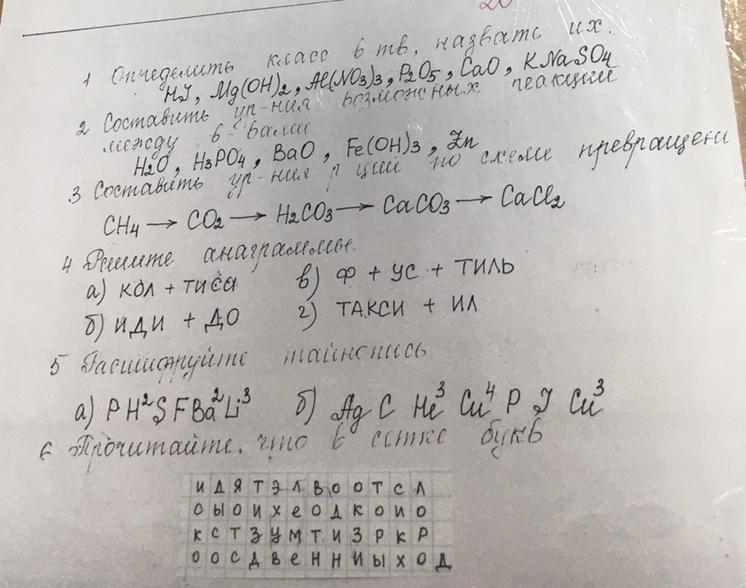 20
1 Определить класс в-тв, назвать их.
HJ, Mg(OH)2, Al(NO3)3, P2O5, CaO, KNaSO4
2 Составить ур-ния возможных реакций
между в-вами
H2O, H3PO4, BaO, Fe(OH)3, Zn
3 Составить ур-ния р-ций по схеме превращени
CH4 → CO2 → H2CO3 → CaCO3 → CaCl2
4 Решите анаграммы.
а) КОЛ + ТИСЯ
в) Ф + УС + ТИЛЬ
б) ИДИ + ДО
г) ТАКСИ + ИЛ
5 Расшифруйте тайнопись
а) P H² S F Ba² Li³
б) Ag C He³ Cu⁴ P J Cu³
6 Прочитайте, что в сетке букв
И Д Я Т Э Л В О О Т С Л
О Ы О И Х Е О Д К О И О
К С Т З У М Т И З Р К Р
О О С Д В Е Н Н И Ы Х О Д